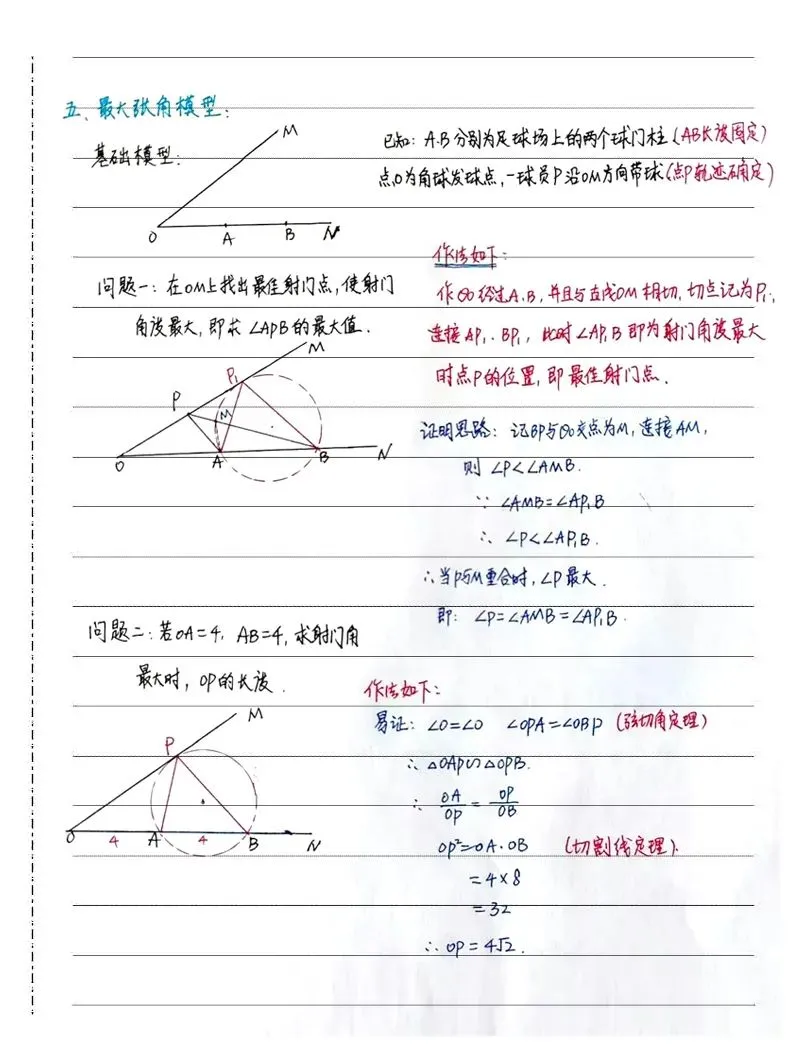 五、最大张角模型:
基础模型:
M
O A B N
已知: A.B分别为足球场上的两个球门柱(AB长度固定)
点O为角球发球点,一球员P沿OM方向带球(点P轨迹确定)
问题一: 在OM上找出最佳射门点,使射门
角度最大,即求∠APB的最大值.
M
P₁
P
M
O A B N
作法如下:
作⊙O经过A.B,并且与直线OM相切,切点记为P₁,
连接AP₁.BP₁,此时∠AP₁B即为射门角度最大
时点P的位置,即最佳射门点.
证明思路: 记BP与⊙O交点为M,连接AM,
则 ∠P<∠AMB.
∵ ∠AMB=∠AP₁B
∴ ∠P<∠AP₁B.
∴当P与M重合时,∠P最大.
即: ∠P=∠AMB=∠AP₁B.
问题二: 若OA=4, AB=4,求射门角
最大时,OP的长度.
M
P
O 4 A 4 B N
作法如下:
易证: ∠O=∠O ∠OPA=∠OBP (弦切角定理)
∴ △OAP∽△OPB.
∴ OA/OP = OP/OB
OP²=OA·OB (切割线定理).
=4×8
=32
∴ OP=4√2.